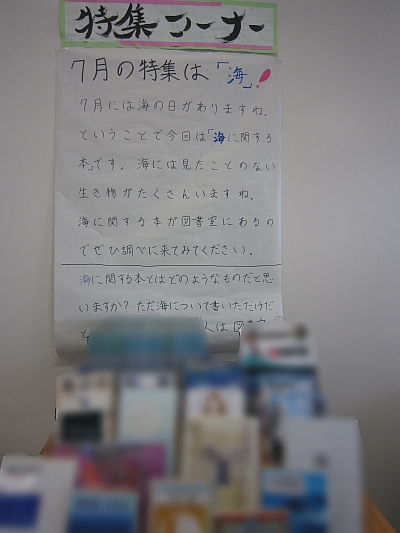 特集コーナー
7月の特集は「海」!
7月には海の日がありますね。
ということで今回は「海に関する
本」です。海には見たことのない
生き物がたくさんいますね。
海に関する本が図書室にあるの
でぜひ調べに来てみてください。
海に関する本とはどのようなものだと思
いますか?ただ海について書いただけだ
と
人は図